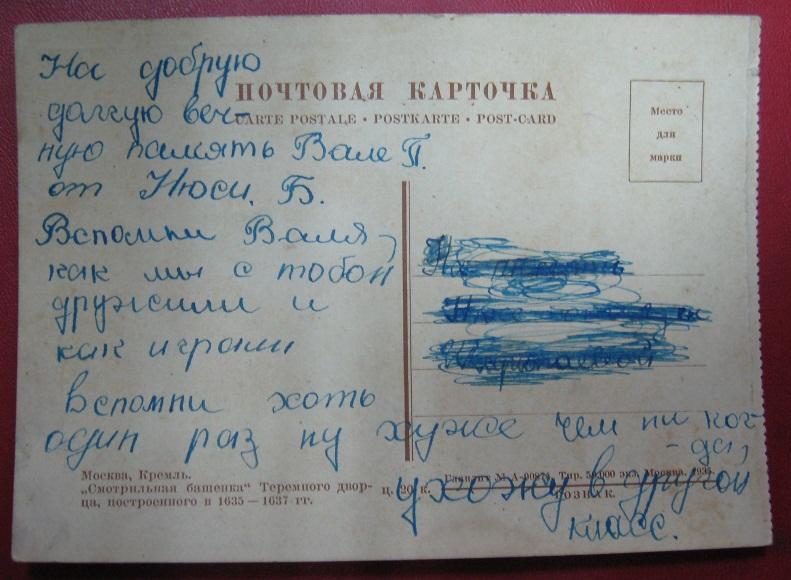 На добрую
долгую веч-
ную память Вале П.
от Нюси. Б.
Вспомни Валя,
как мы с тобой
дружили и
как играли
вспомни хоть
один раз ну хуже чем ни ког-
да,
ухожу в другой
класс.
ПОЧТОВАЯ КАРТОЧКА
CARTE POSTALE • POSTKARTE • POST-CARD
Место
для
марки
На память
Москва, Кремль.
„Смотрильная башенка“ Теремного двор-
ца, построенного в 1635—1637 гг.
ц. 20 к.
Главлит № А-00874. Тир. 50,000 экз. Москва.
ГОЗНАК.